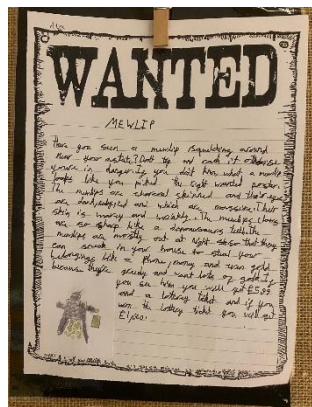 WANTED
MEWLIP
Have you seen a mewlip squelching around
Near your estate? Dont try and catch it
you're in danger if you don't know what a mewlip
looks like you picked the right wanted poster.
The mewlips are charcoal skinned and their eyes
are and which are Their
skin is and The mewlips claws
are so sharp like a teeth. The
mewlips are mostly out at Night so that they
can sneak in your house to steal your
belongings like a Phone, money and even gold
because they're greedy and want lots of gold. If
you see him you will get £5.99
and a lottery ticket and if you
won the lottery ticket you will get